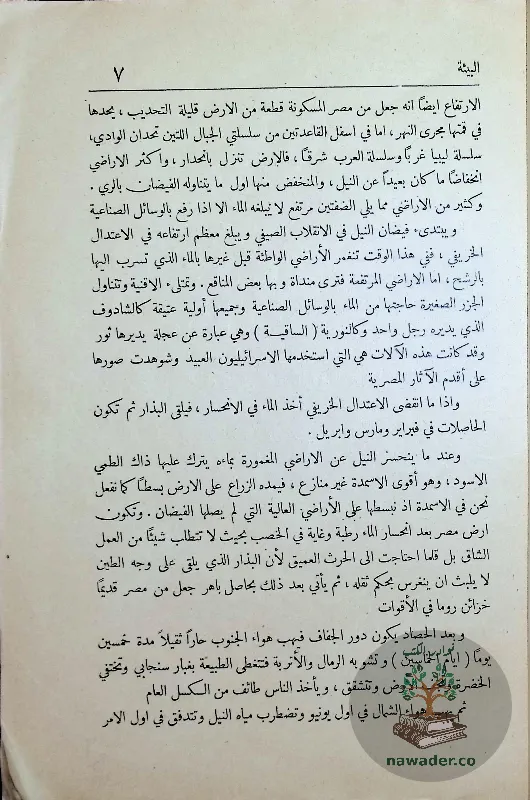 البيئة
٧
الارتفاع ايضًا انه جعل من مصر المسكونة قطعة من الارض قليلة التحديب ، يحدها
في قمتها مجرى النهر ، اما في اسفل القاعدتين من سلسلتي الجبال اللتين تحدان الوادي،
سلسلة ليبيا غربًا وسلسلة العرب شرقًا ، فالارض تنزل بانحدار ، واكثر الاراضي
انخفاضًا ما كان بعيدًا عن النيل ، والمنخفض منها اول ما يتناوله الفيضان بالري .
وكثير من الاراضي مما يلي الضفتين مرتفع لا يبلغه الماء الا اذا رفع بالوسائل الصناعية
و يبتدىء فيضان النيل في الانقلاب الصيفي ويبلغ معظم ارتفاعه في الاعتدال
الخريفي ، ففي هذا الوقت تنغمر الأراضي الواطئة قبل غيرها بالماء الذي تسرب اليها
بالرشح ، اما الاراضي المرتفعة فترى منداة وبها بعض المناقع . وتمتلىء الاقنية وتتناول
الجزر الصغيرة حاجتها من الماء بالوسائل الصناعية وجميعها أولية عتيقة كالشادوف
الذي يديره رجل واحد وكالنورية ( الساقية ) وهي عبارة عن عجلة يديرها ثور
وقد كانت هذه الآلات هي التي استخدمها الاسرائيليون العبيد وشوهدت صورها
على أقدم الآثار المصرية
واذا ما انقضى الاعتدال الخريفي أخذ الماء في الانحسار ، فيلقى البذار ثم تكون
الحاصلات في فبراير ومارس وابريل .
وعند ما ينحسر النيل عن الاراضي المغمورة بمائه يترك عليها ذاك الطمي
الاسود ، وهو أقوى الاسمدة غير منازع ، فيمده الزراع على الارض بسطًا كما نفعل
نحن في الاسمدة اذ نبسطها على الأراضي العالية التي لم يصلها الفيضان . وتكون
ارض مصر بعد انحسار الماء رطبة وغاية في الخصب بحيث لا تتطلب شيئًا من العمل
الشاق بل قلما احتاجت الى الحرث العميق لأن البذار الذي يلقى على وجه الطين
لا يلبث ان ينغرس بحكم ثقله ، ثم يأتي بعد ذلك بحاصل باهر جعل من مصر قديمًا
خزائن روما في الأقوات
وبعد الحصاد يكون دور الجفاف فيهب هواء الجنوب حارًا ثقيلاً مدة خمسين
يومًا ( ايام الخماسين ) وتشوبه الرمال والأتربة فتتغطى الطبيعة بغبار سنجابي وتختفي
الخضرة الأرض وتتشقق ، ويأخذ الناس طائف من الكسل العام
ثم هواء الشمال في اول يونيو وتضطرب مياه النيل وتتدفق في اول الامر
نوادر الكتب
nawader.co